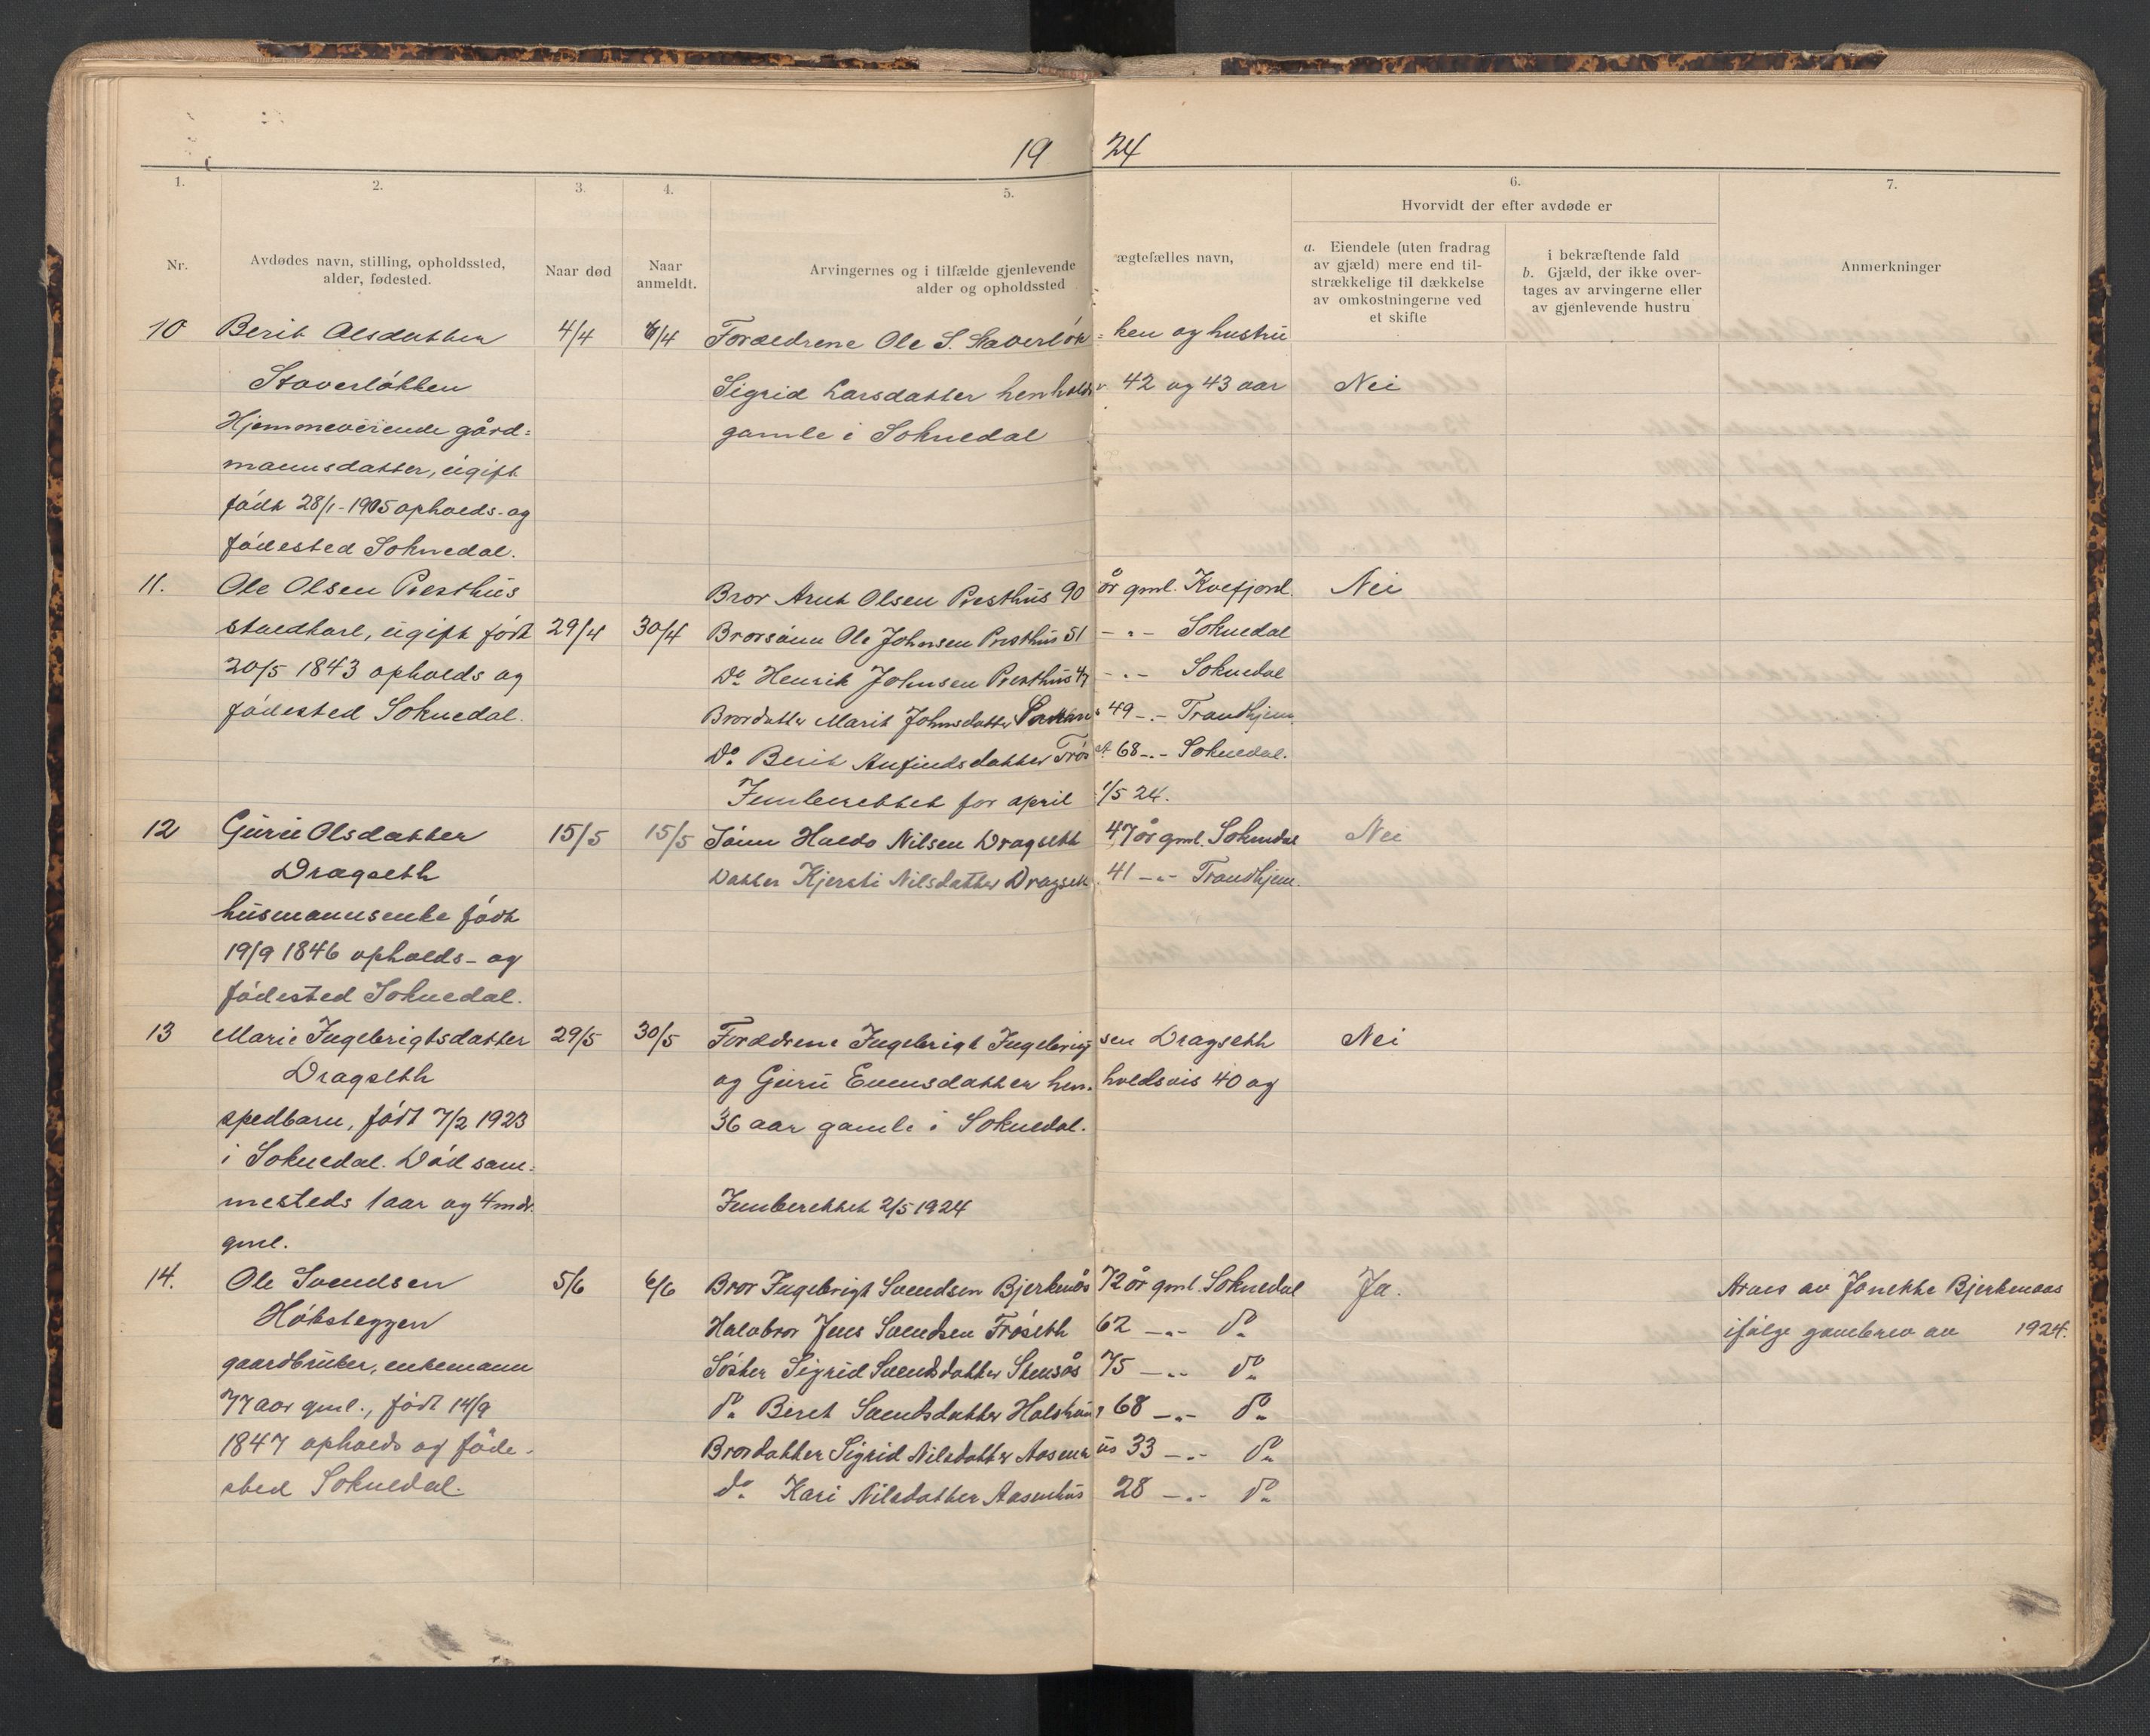 19 24
1.
2.
3.
4.
5.
6.
7.
Hvorvidt der efter avdøde er
Nr.
Avdødes navn, stilling, opholdssted,
alder, fødested.
Naar død
Naar
anmeldt.
Arvingernes og i tilfælde gjenlevende ægtefælles navn,
alder og opholdssted
a. Eiendele (uten fradrag
av gjæld) mere end til-
strækkelige til dækkelse
av omkostningerne ved
et skifte
i bekræftende fald
b. Gjæld, der ikke over-
tages av arvingerne eller
av gjenlevende hustru
Anmerkninger
10 Berit Olsdatter 4/4 6/4 Forældrene Ole S. Staverløk=ken og hustru
Staverløkken Sigrid Larsdatter henholdsv. 42 og 43 aar Nei
Hjemmeværende gård= gamle i Soknedal
mannsdatter, ugift
født 28/1-1905 opholds- og
fødested Soknedal.
11. Ole Olsen Presthus Bror Arnt Olsen Presthus 90 år gml. Kvefjord. Nei
stuedkarl, ugift født 29/4 30/4 Brorsønn Ole Johnsen Presthus 51 -"- Soknedal
20/5 1843 opholds og Do Henrik Johnsen Presthus 47 -"- Soknedal
fødested Soknedal. Brordatter Marit Johnsdatter 49 -"- Trondhjem.
Do Berit Anfindsdatter Frøset 68 -"- Soknedal.
Innberettet for april 1/5 24.
12 Guru Olsdatter 15/5 15/5 Sønn Haldo Nilsen Dragseth 47 år gml. Soknedal Nei
Dragseth Datter Kjersti Nilsdatter Dragseth. 41 -"- Trondhjem.
husmannsenke født
19/9 1846 opholds- og
fødested Soknedal.
13 Marie Ingebrigtsdatter 29/5 30/5 Forældrene Ingebrigt Ingebrigtsen Dragseth Nei
Dragseth og Guru Evensdatter hen=holdsvis 40 og
spedbarn, født 7/2 1923 36 aar gamle i Soknedal.
i Soknedal. Død sam=
mesteds 1 aar og 4 mdr. Innberettet 2/5 1924
gml.
14. Ole Svendsen 5/6 6/6 Bror Ingebrigt Svendsen Bjerkenås 72 år gml. Soknedal Ja. Arves av Janekke Bjerkenaas
Høksteggen Halvbror Jens Svendsen Frøseth 62 -"- do ifølge gavebrev av 1924.
gaardbruker, enkemann Søster Sigrid Svendsdatter Stensås 75 -"- do
77 aar gml., født 14/9 do Beret Svendsdatter Halshus 68 -"- do
1847 opholds og føde- Brordatter Sigrid Nilsdatter Aasenhus 33 -"- do
sted Soknedal. do Kari Nilsdatter Aasenhus 28 -"- do